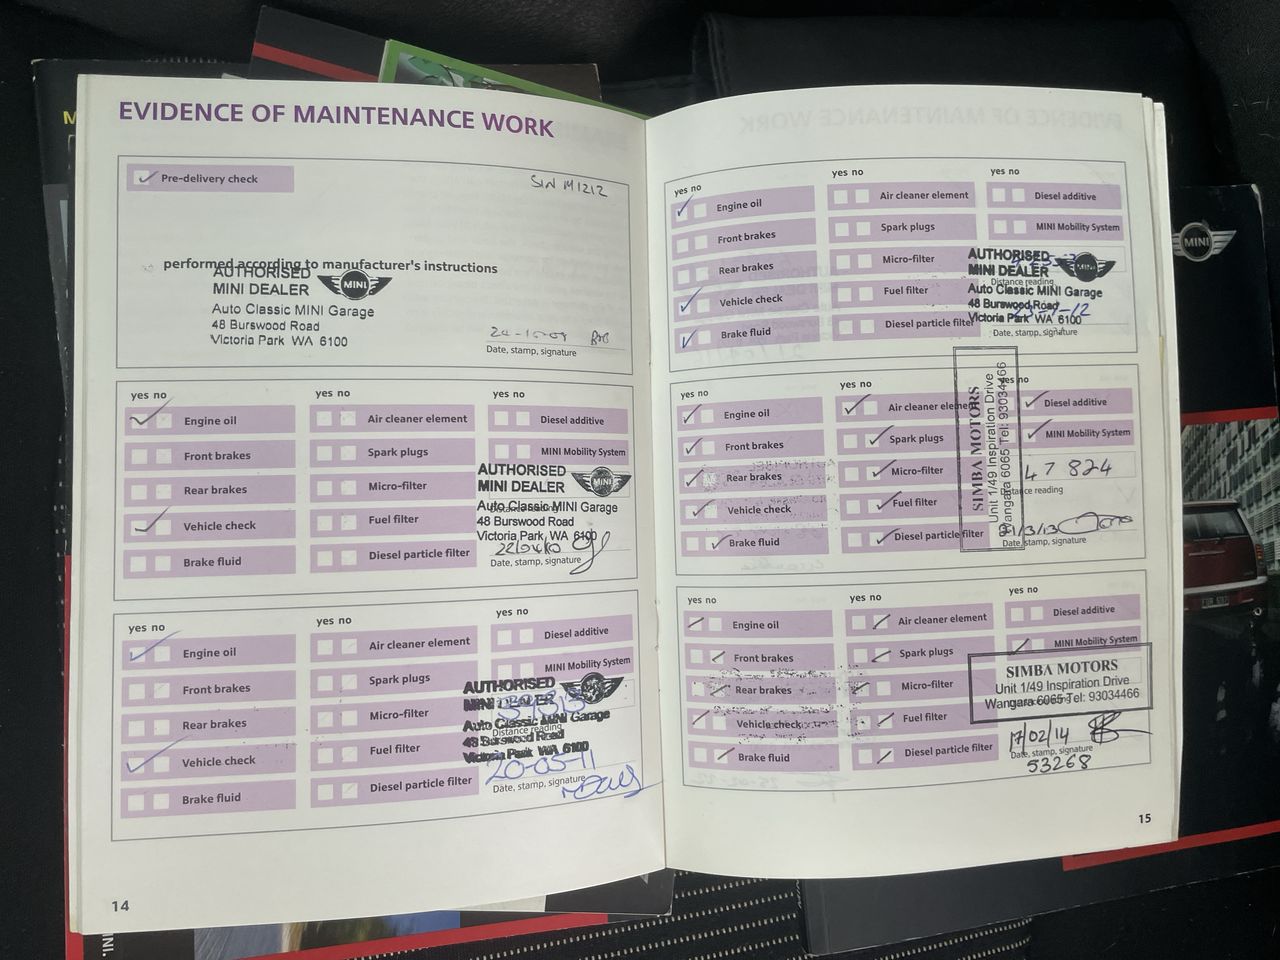 EVIDENCE OF MAINTENANCE WORK
Pre-delivery check
SIN M1212
performed according to manufacturer's instructions
AUTHORISED
MINI DEALER
MINI
Auto Classic MINI Garage
48 Burswood Road
Victoria Park WA 6100
Date, stamp, signature
yes no
yes no
yes no
Engine oil
Air cleaner element
Diesel additive
Front brakes
Spark plugs
MINI Mobility System
Rear brakes
Micro-filter
Vehicle check
Fuel filter
Brake fluid
Diesel particle filter
AUTHORISED
MINI DEALER
MINI
Auto Classic MINI Garage
48 Burswood Road
Victoria Park WA 6100
Date, stamp, signature
yes no
yes no
yes no
Engine oil
Air cleaner element
Diesel additive
Front brakes
Spark plugs
MINI Mobility System
Rear brakes
Micro-filter
Vehicle check
Fuel filter
Brake fluid
Diesel particle filter
AUTHORISED
MINI DEALER
Auto Classic MINI Garage
48 Burswood Road
Victoria Park WA 6100
Distance reading
20-05-11
Date, stamp, signature
14
yes no
yes no
yes no
Engine oil
Air cleaner element
Diesel additive
Front brakes
Spark plugs
MINI Mobility System
Rear brakes
Micro-filter
Vehicle check
Fuel filter
Brake fluid
Diesel particle filter
AUTHORISED
MINI DEALER
Distance reading
Auto Classic MINI Garage
48 Burswood Road
Victoria Park WA 6100
Date, stamp, signature
yes no
yes no
yes no
Engine oil
Air cleaner element
Diesel additive
Front brakes
Spark plugs
MINI Mobility System
Rear brakes
Micro-filter
Vehicle check
Fuel filter
Brake fluid
Diesel particle filter
SIMBA MOTORS
Unit 1/49 Inspiration Drive
Wangara 6065 Tel: 93034466
47 824
Distance reading
Date, stamp, signature
yes no
yes no
yes no
Engine oil
Air cleaner element
Diesel additive
Front brakes
Spark plugs
MINI Mobility System
Rear brakes
Micro-filter
Vehicle check
Fuel filter
Brake fluid
Diesel particle filter
SIMBA MOTORS
Unit 1/49 Inspiration Drive
Wangara 6065 Tel: 93034466
17/02/14
Date, stamp, signature
53268
15
MINI
MINI.